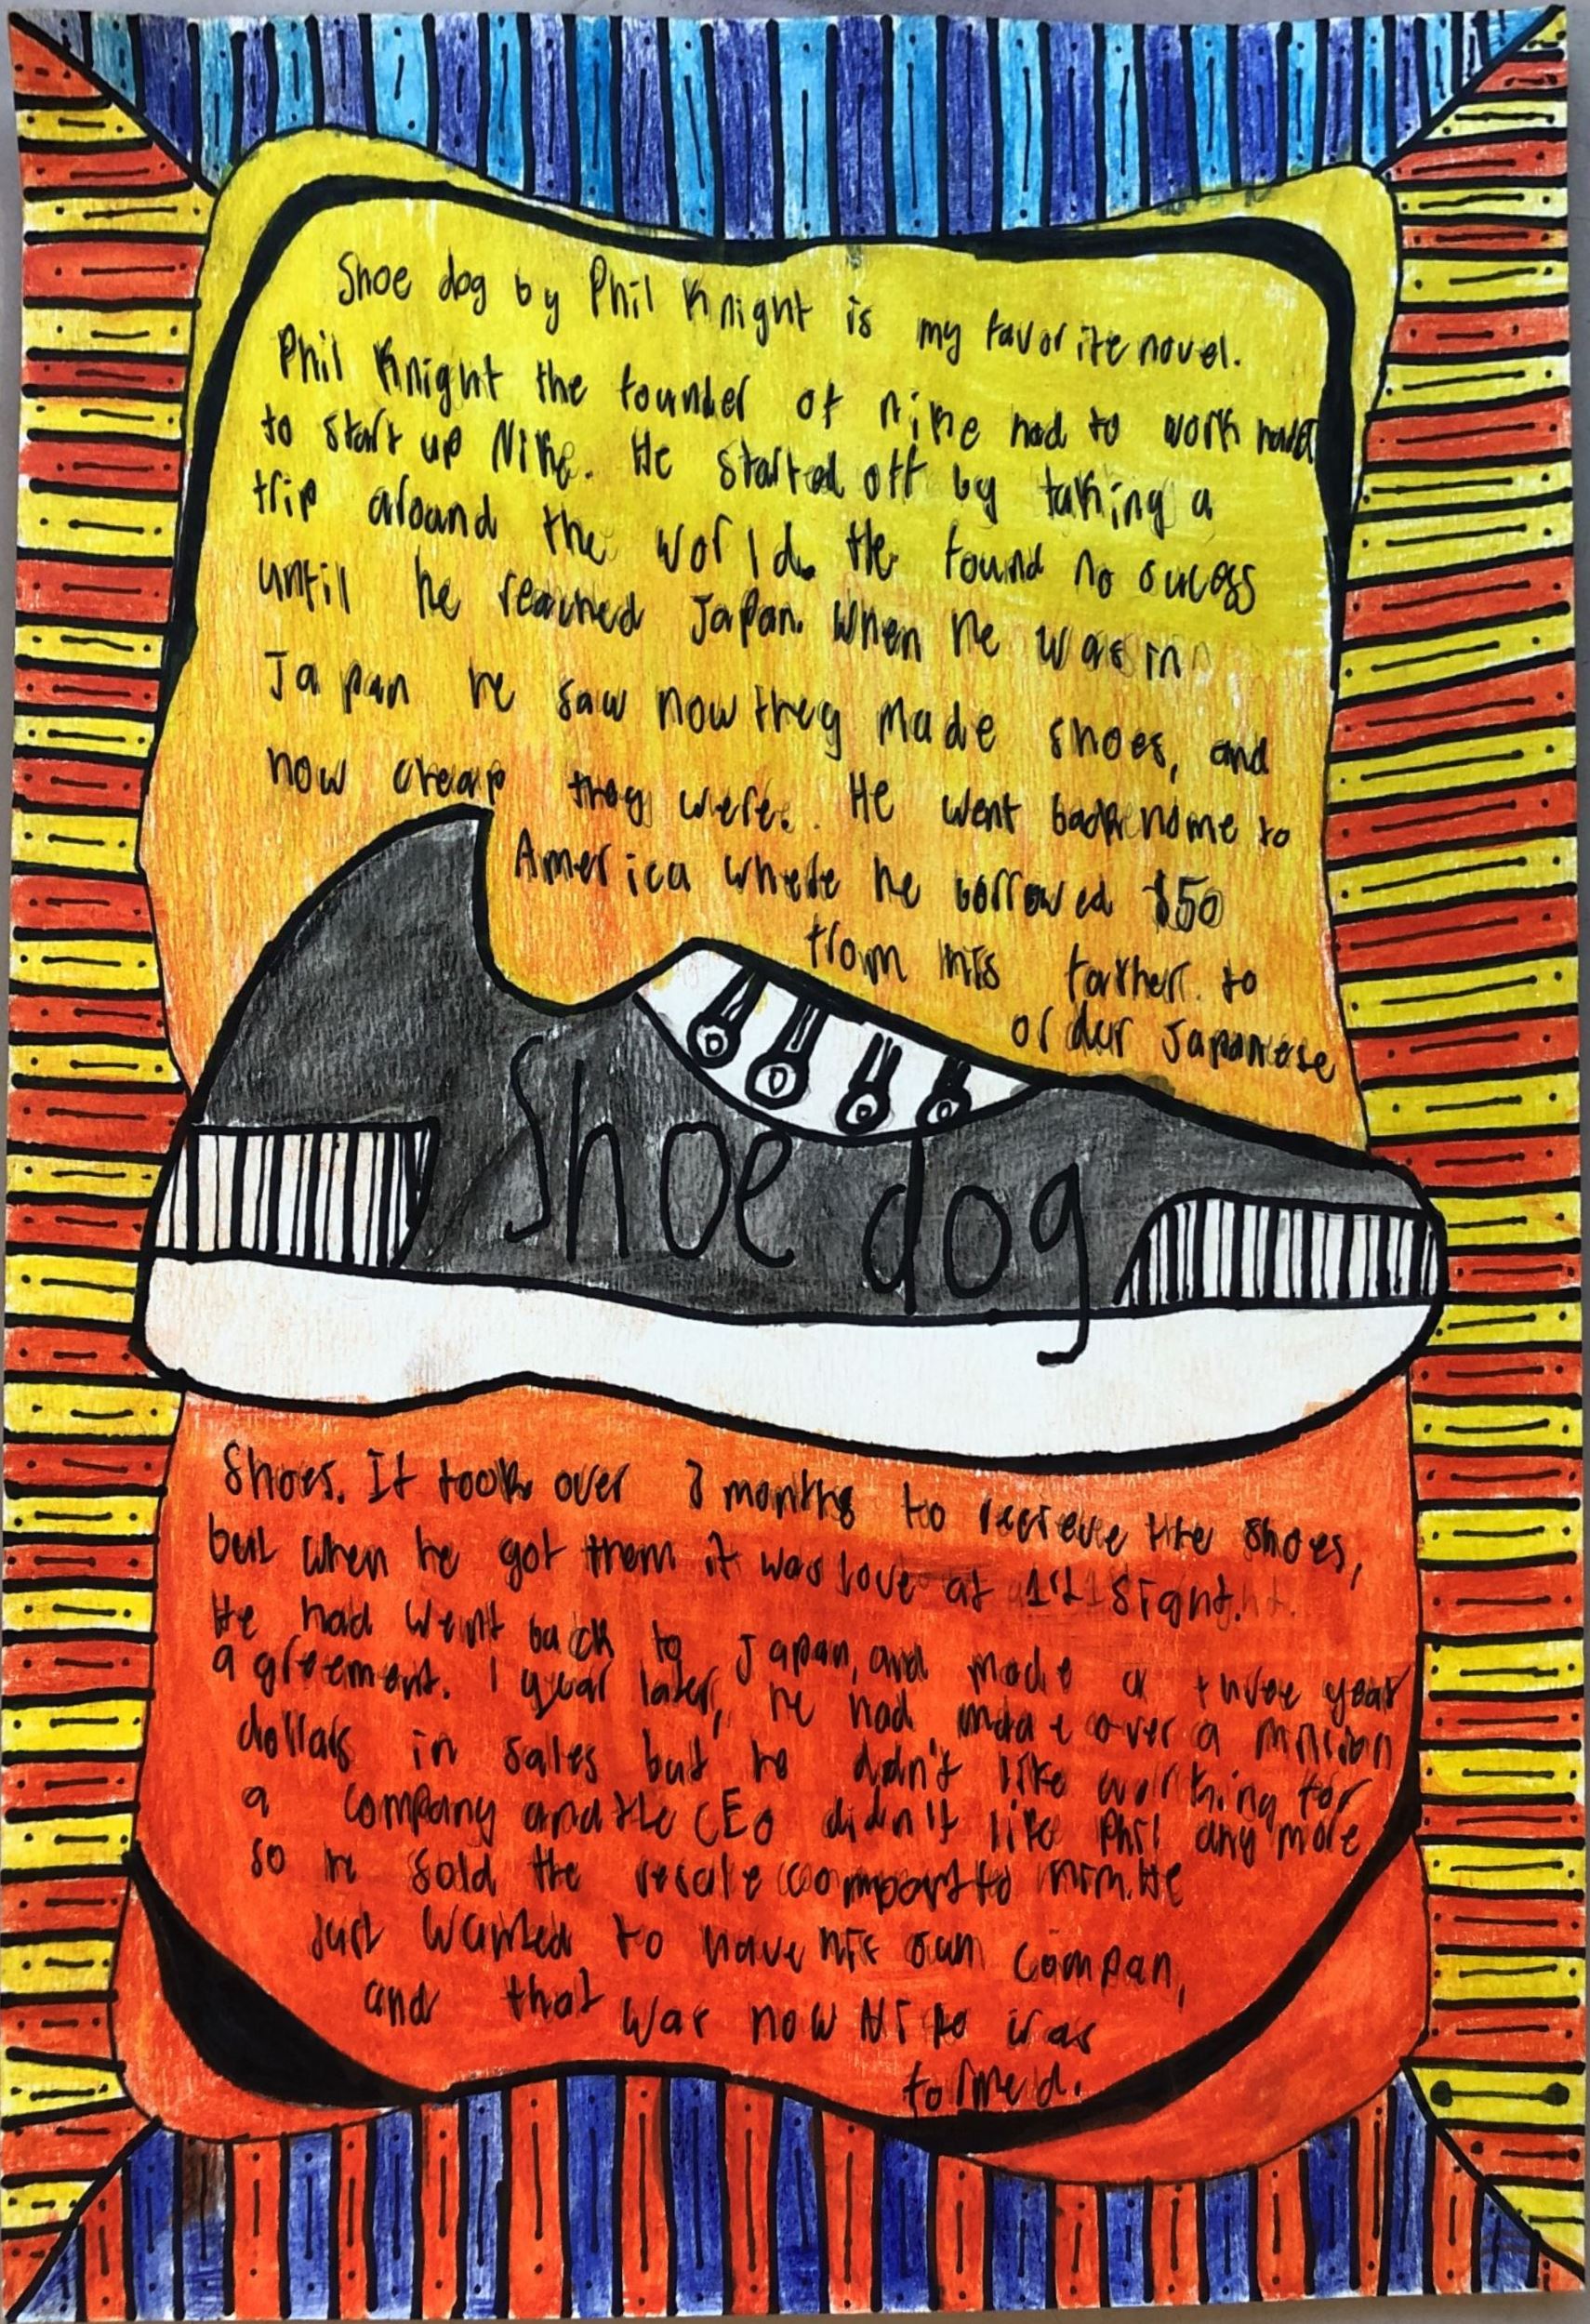 Shoe dog by Phil Knight is my favorite novel.
Phil Knight the founder of nike had to work hard
to start up Nike. He started off by taking a
trip around the world. He found no sucess
until he reached Japan. When he was in
Japan he saw how they made shoes, and
how cheap they were. He went back home to
America where he borrowed $50
from his father to
order Japanese
Shoe dog
Shoes. It took over 3 months to recieve the shoes,
but when he got them it was love at 1st sight.
He had went back to Japan, and made a three year
agreement. 1 year later, he had made over a million
dollars in sales but he didn't like working for
a company and the CEO didn't like Phil any more
so he sold the resale to him. He
just wanted to have his own compan,
and that was how Nike was
formed.